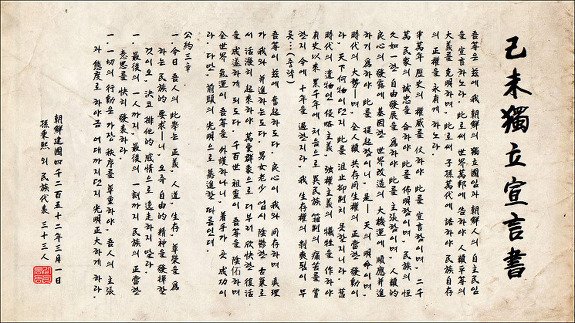 己未獨立宣言書
吾等은 玆에 我 朝鮮의 獨立國임과 朝鮮人의 自主民임
을 宣言하노라. 此로써 世界萬邦에 告하야 人類平等의
大義를 克明하며, 此로써 子孫萬代에 誥하야 民族自存
의 正權을 永有케 하노라.
半萬年 歷史의 權威를 仗하야 此를 宣言함이며, 二千
萬 民衆의 誠忠을 合하야 此를 佈明함이며, 民族의 恒
久如一한 自由發展을 爲하야 此를 主張함이며, 人類的
良心의 發露에 基因한 世界改造의 大機運에 順應幷進
하기 爲하야 此를 提起함이니, 是ㅣ 天의 明命이며,
時代의 大勢ㅣ며, 全人類 共存同生權의 正當한 發動이
라, 天下何物이던지 此를 沮止抑制치 못할지니라. 舊
時代의 遺物인 侵略主義, 强權主義의 犧牲을 作하야
有史以來 累千年에 처음으로 異民族 箝制의 痛苦를 嘗
한지 今에 十年을 過한지라. 我 生存權의 剝喪됨이 무
릇…(중략)
吾等이 玆에 奮起하도다. 良心이 我와 同存하며 眞理
가 我와 幷進하는도다. 男女老少 업시 陰鬱한 古巢로
서 活潑히 起來하야 萬彙羣象으로 더부러 欣快한 復活
을 成遂하게 되도다. 千百世 祖靈이 吾等을 陰佑하며
全世界 氣運이 吾等을 外護하나니, 着手가 곳 成功이
라. 다만, 前頭의 光明으로 驀進할 따름인뎌.
公約三章
一. 今日 吾人의 此擧는 正義, 人道, 生存, 尊榮을 爲
하는 民族的 要求이니, 오즉 自由的 精神을 發揮할
것이오, 決코 排他的 感情으로 逸走하지 말라.
一. 最後의 一人까지, 最後의 一刻까지 民族의 正當한
意思를 快히 發表하라.
一. 一切의 行動은 가장 秩序를 尊重하야, 吾人의 主張
과 態度로 하야금 어대까지던지 光明正大하게 하라.
朝鮮建國四千二百五十二年三月一日
孫秉熙외 民族代表 三十三人